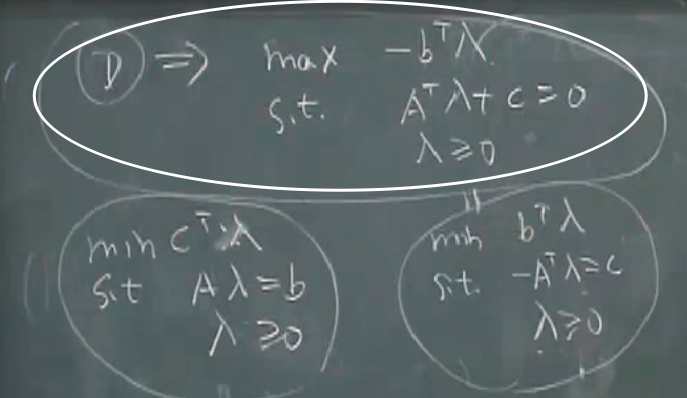 D ⇒ max -bᵀλ
s.t. Aᵀλ + c = 0
λ ≥ 0
min cᵀλ
s.t Aλ = b
λ ≥ 0
min bᵀλ
s.t. -Aᵀλ = c
λ ≥ 0